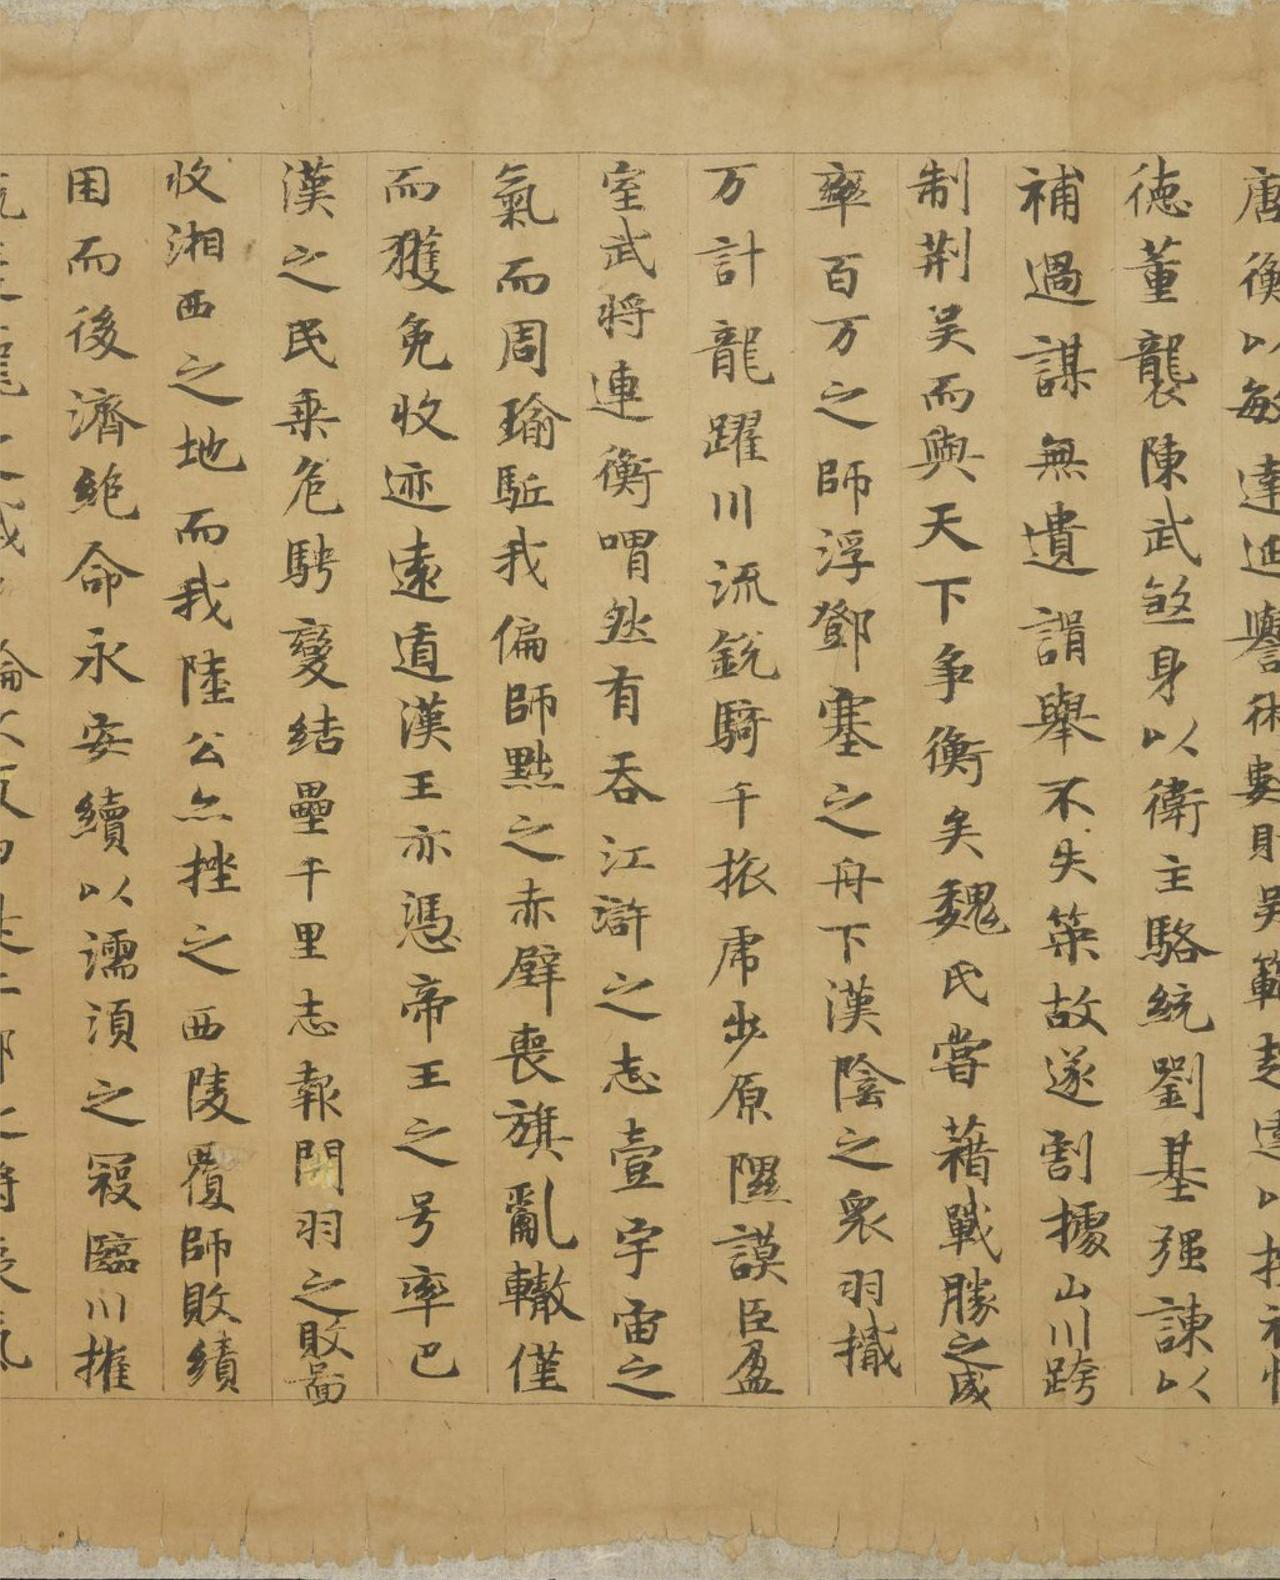 唐衡以敏達延譽術數則吳範趙達以
德董襲陳武煞身以衛主駱統劉基强諫以
補過謀無遺諝舉不失策故遂割據山川跨
制荆吴而與天下争衡矣魏氏嘗藉戰勝之威
率百万之師浮鄧塞之舟下漢陰之衆羽撠
万計龍躍川流銳騎千旅虎步原隰謨臣盈
室武将連衡喟然有吞江滸之志壹宇宙之
氣而周瑜駈我偏師黜之赤壁喪旗亂轍僅
而獲免收迹遠遁漢王亦憑帝王之号率巴
漢之民乗危騁變结壘千里志報関羽之敗啚
收湘西之地而我陸公亦挫之西陵覆師敗績
困而後濟絶命永安續以濡湏之寇臨川摧